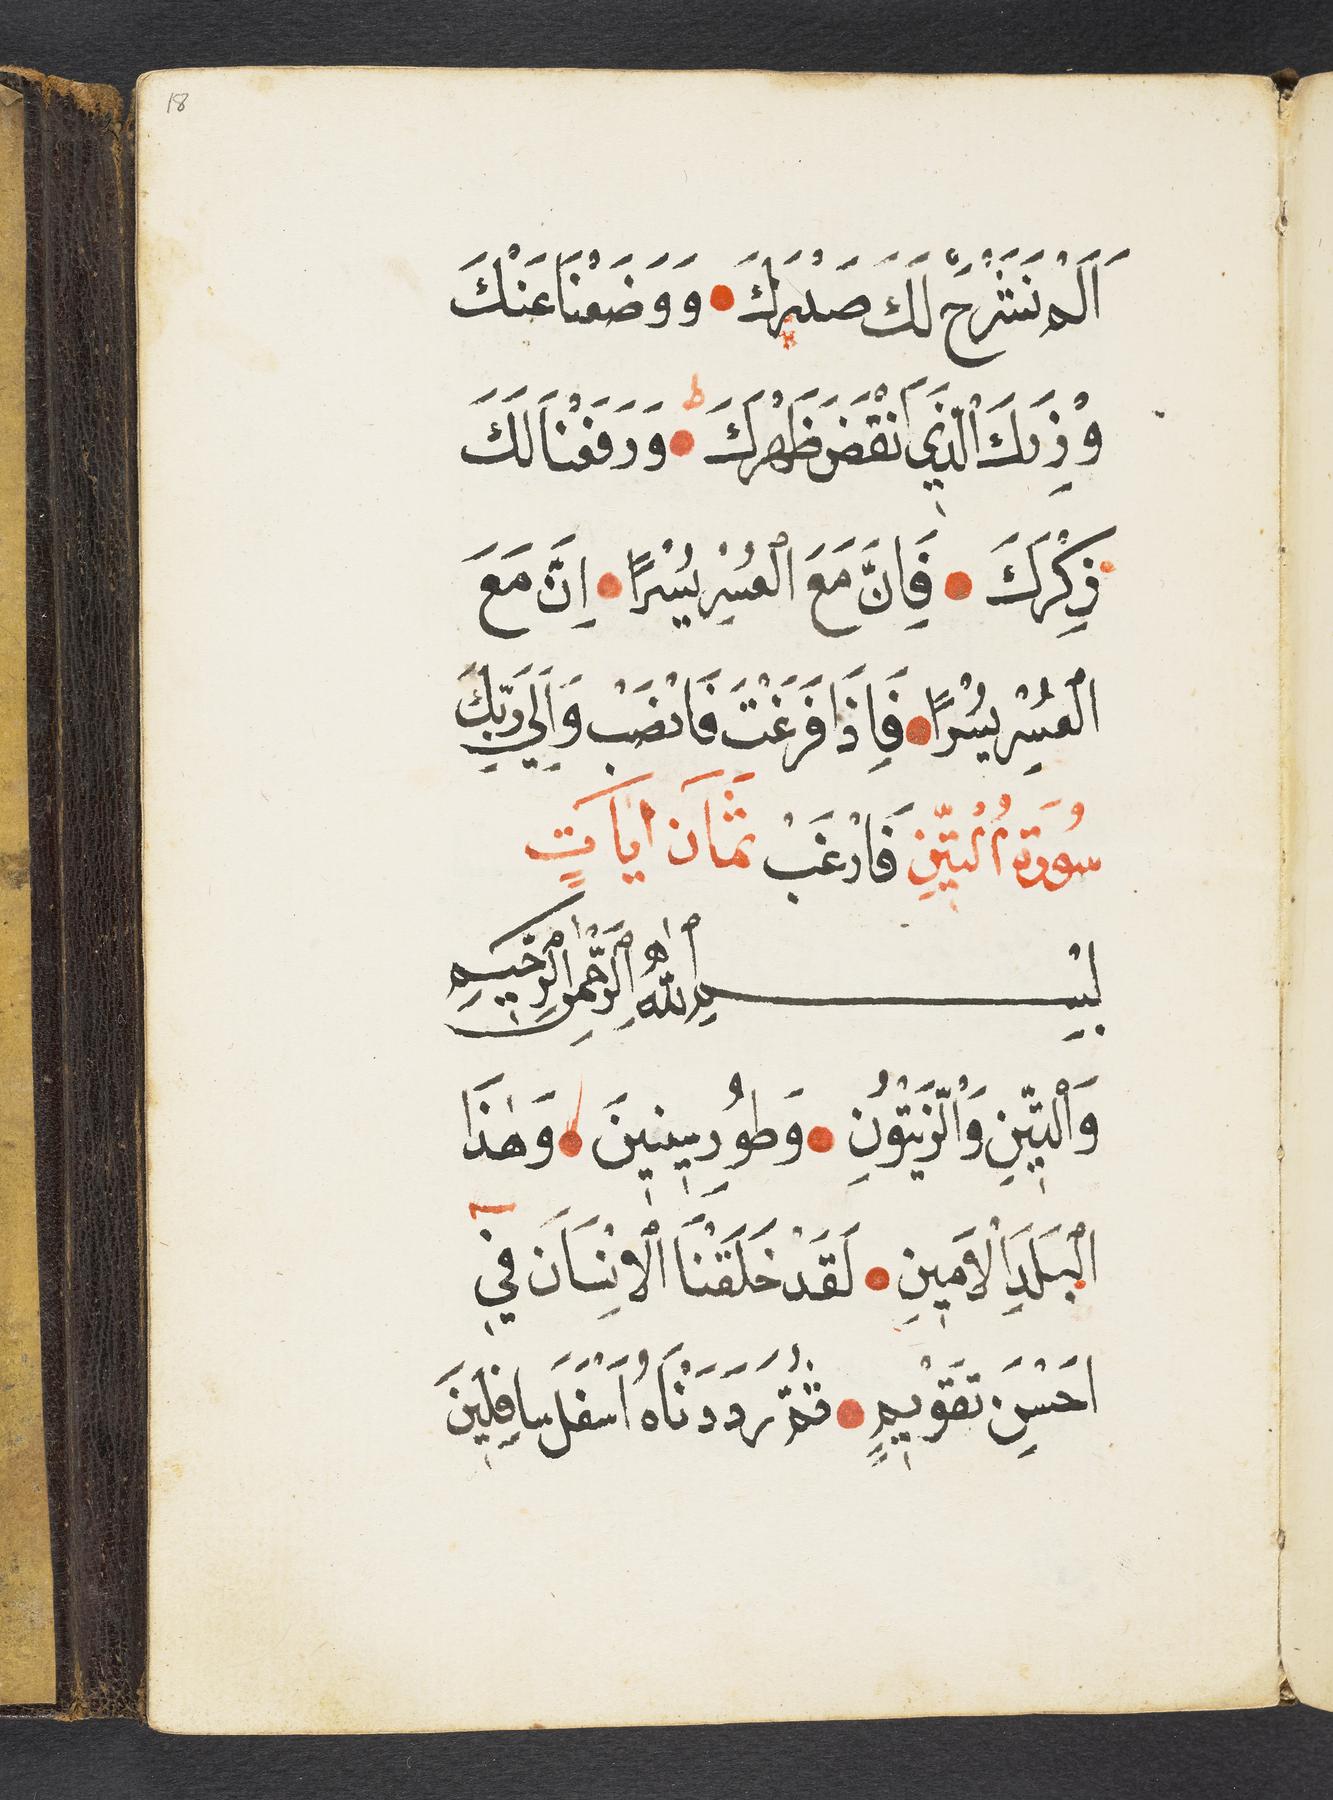 18
اَلَمْ نَشْرَحْ لَكَ صَدْرَكَ وَوَضَعْنَا عَنْكَ
وِزْرَكَ الَّذِي اَنْقَضَ ظَهْرَكَ ط وَرَفَعْنَا لَكَ
ذِكْرَكَ فَاِنَّ مَعَ الْعُسْرِ يُسْرًا اِنَّ مَعَ
الْعُسْرِ يُسْرًا فَاِذَا فَرَغْتَ فَانْصَبْ وَاِلَي رَبِّكَ
سُورَةُ الْتِّينِ فَارْغَبْ ثَمَانَ اٰيَاتٍ
بِسْــــــــمِ اللّٰهِ الرَّحْمٰنِ الرَّحِيمِ
وَالْتِّينِ وَالْزَّيْتُوْنِ وَطُورِ سِينِينَ وَهٰذَا
الْبَلَدِ الْاَمِينِ لَقَدْ خَلَقْنَا الْاِنْسَانَ فِي
اَحْسَنِ تَقْوِيمٍ ثُمَّ رَدَدْنَاهُ اَسْفَلَ سَافِلِينَ